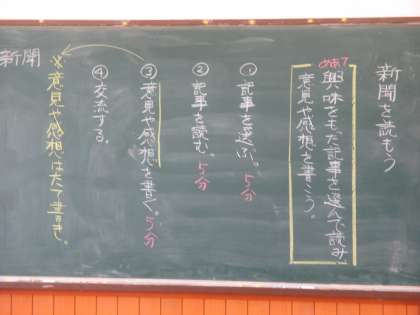 新聞を読もう
めあて
興味をもった記事を選んで読み
意見や感想を書こう。
①記事を選ぶ。5分
②記事を読む。5分
③意見や感想を書く。5分
④交流する。
※意見や感想はたて書き。
新聞